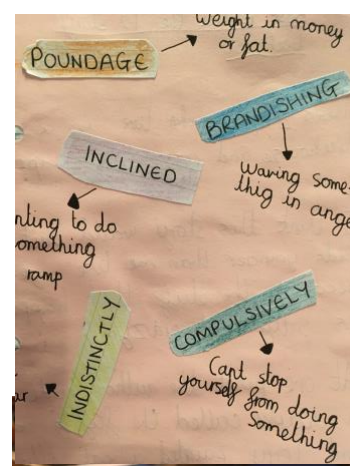 POUNDAGE
weight in money
or fat.
BRANDISHING
waving some-
thig in ange
INCLINED
nting to do
omething
ramp
INDISTINCTLY
ar
COMPULSIVELY
Cant stop
yourself from doing
Something